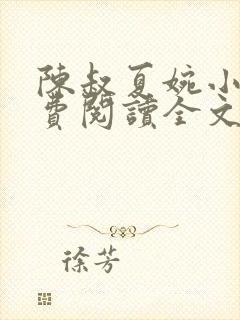 陳叔夏婉小
費閱讀全文
徐芳